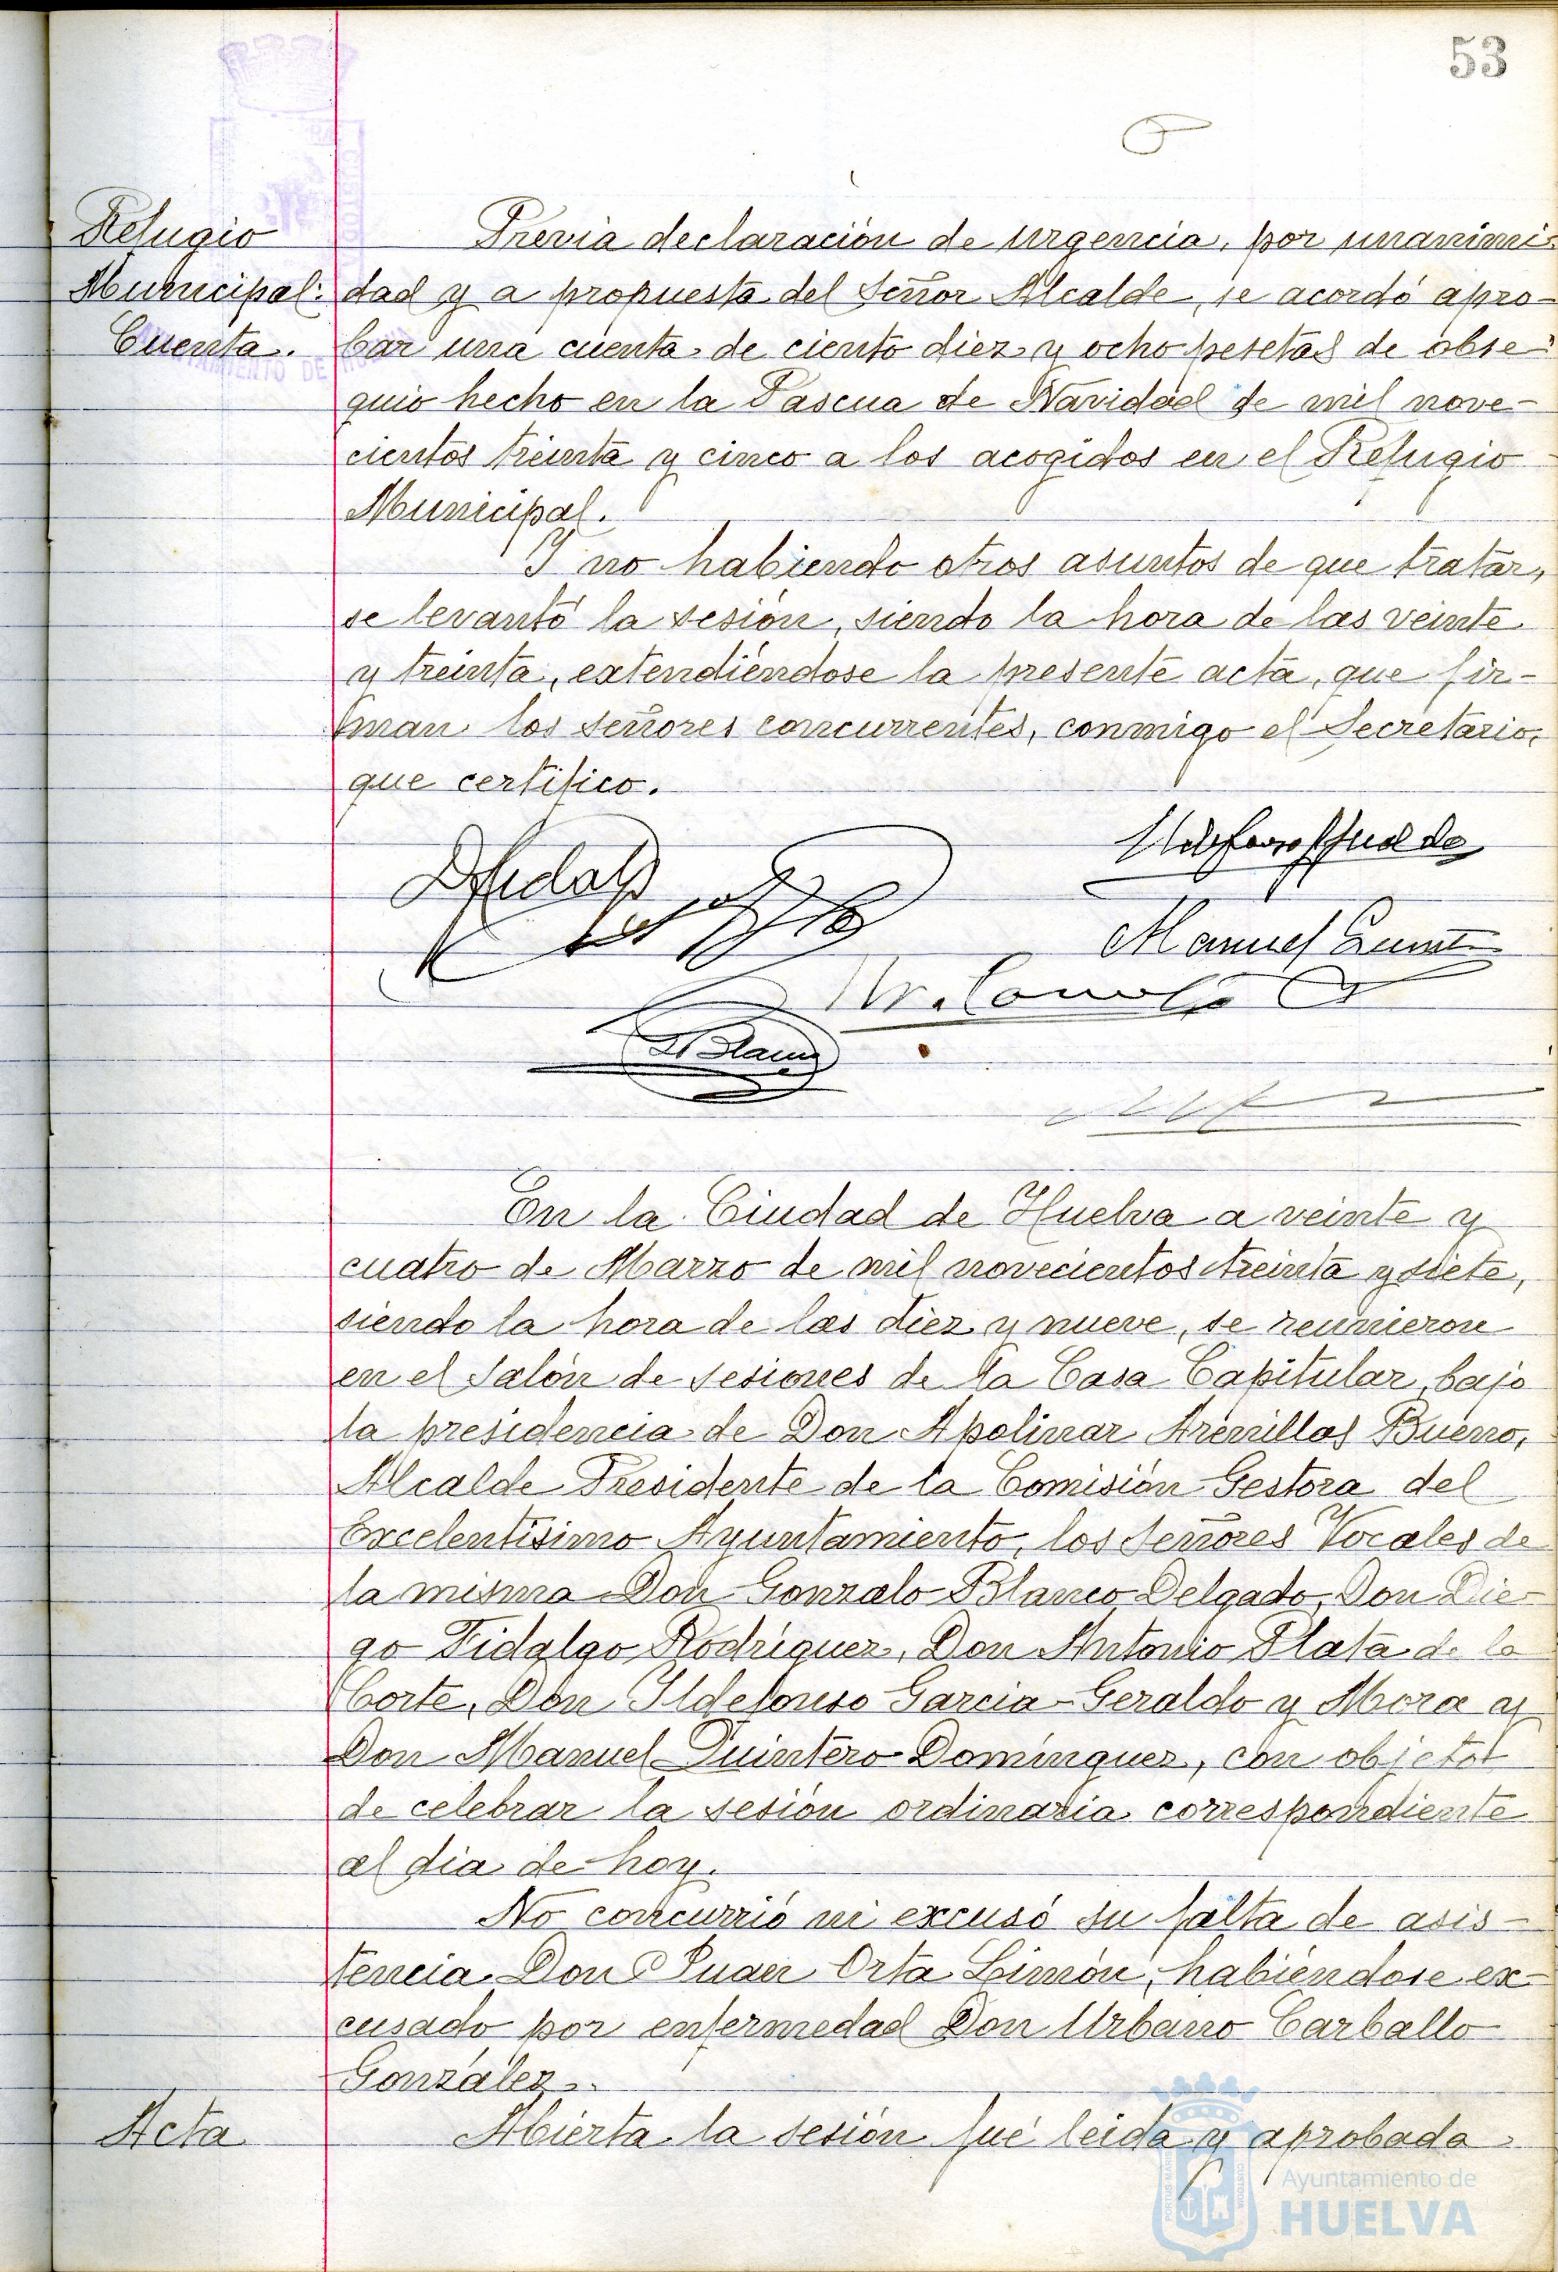 53
Refugio
Municipal:
Cuenta.
Previa declaración de urgencia, por unanimi-
dad y a propuesta del Señor Alcalde, se acordó apro-
bar una cuenta de ciento diez y ocho pesetas de obse-
quio hecho en la Pascua de Navidad de mil nove-
cientos treinta y cinco a los acogidos en el Refugio
Municipal.
Y no habiendo otros asuntos de que tratar,
se levantó la sesión, siendo la hora de las veinte
y treinta, extendiéndose la presente acta, que fir-
man los señores concurrentes, conmigo el Secretario,
que certifico.
Manuel
Blanco
En la Ciudad de Huelva a veinte y
cuatro de Marzo de mil novecientos treinta y siete,
siendo la hora de las diez y nueve, se reunieron
en el Salón de sesiones de la Casa Capitular, bajo
la presidencia de Don Apolinar Arenillas Bueno,
Alcalde Presidente de la Comisión Gestora del
Excelentísimo Ayuntamiento, los Señores Vocales de
la misma Don Gonzalo Blanco Delgado, Don Die-
go Fidalgo Rodríguez, Don Antonio Plata de la
Corte, Don Ildefonso García-Geraldo y Mora y
Don Manuel Quintero Domínguez, con objeto
de celebrar la sesión ordinaria correspondiente
al dia de hoy.
No concurrió ni excusó su falta de asis-
tencia Don Juan Orta Limón, habiéndose ex-
cusado por enfermedad Don Urbano Carballo
González.
Acta
Abierta la sesión fué leida y aprobada
Ayuntamiento de
HUELVA